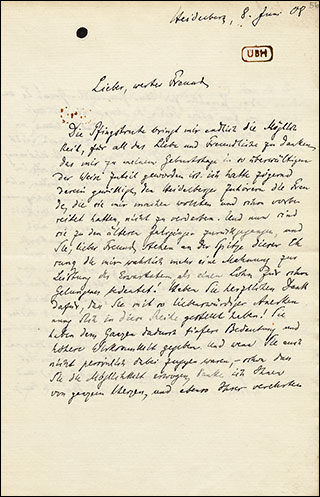 56
Heidelberg, 8. Juni 08
UBH
Lieber, werter Freund,
Die Pfingstruhe bringt mir endlich die Möglich
keit, für all das Liebe und Freundliche zu danken,
das mir zu meinem Geburtstage in so überwältigen
der Weise zuteil geworden ist. Ich hatte zögernd
darein gewilligt, den Heidelberger Zuhörern die Freu
de, die sie mir machen wollten und schon vorbe
reitet hatten, nicht zu verderben. Und nun sind
sie zu den älteren Jahrgängen zurückgegangen, und
Sie, lieber Freund, stehen an der Spitze dieser Eh
rung die mir wahrlich mehr eine Mahnung zur
Leistung des Erwarteten als einen Lohn für schon
Gelungenes bedeutet! Haben Sie herzlichen Dank
dafür, daß Sie mit so liebenswürdiger Anerken
nung Sich in diese Reihe gestellt haben! Sie
haben dem Ganzen dadurch tiefere Bedeutung und
höhere Wirksamkeit gegeben. Und wenn Sie auch
nicht persönlich dabei zugegen waren, – schon daß
Sie die Möglichkeit erwogen, danke ich Ihnen
von ganzem Herzen, und ebenso Ihrer verehrten